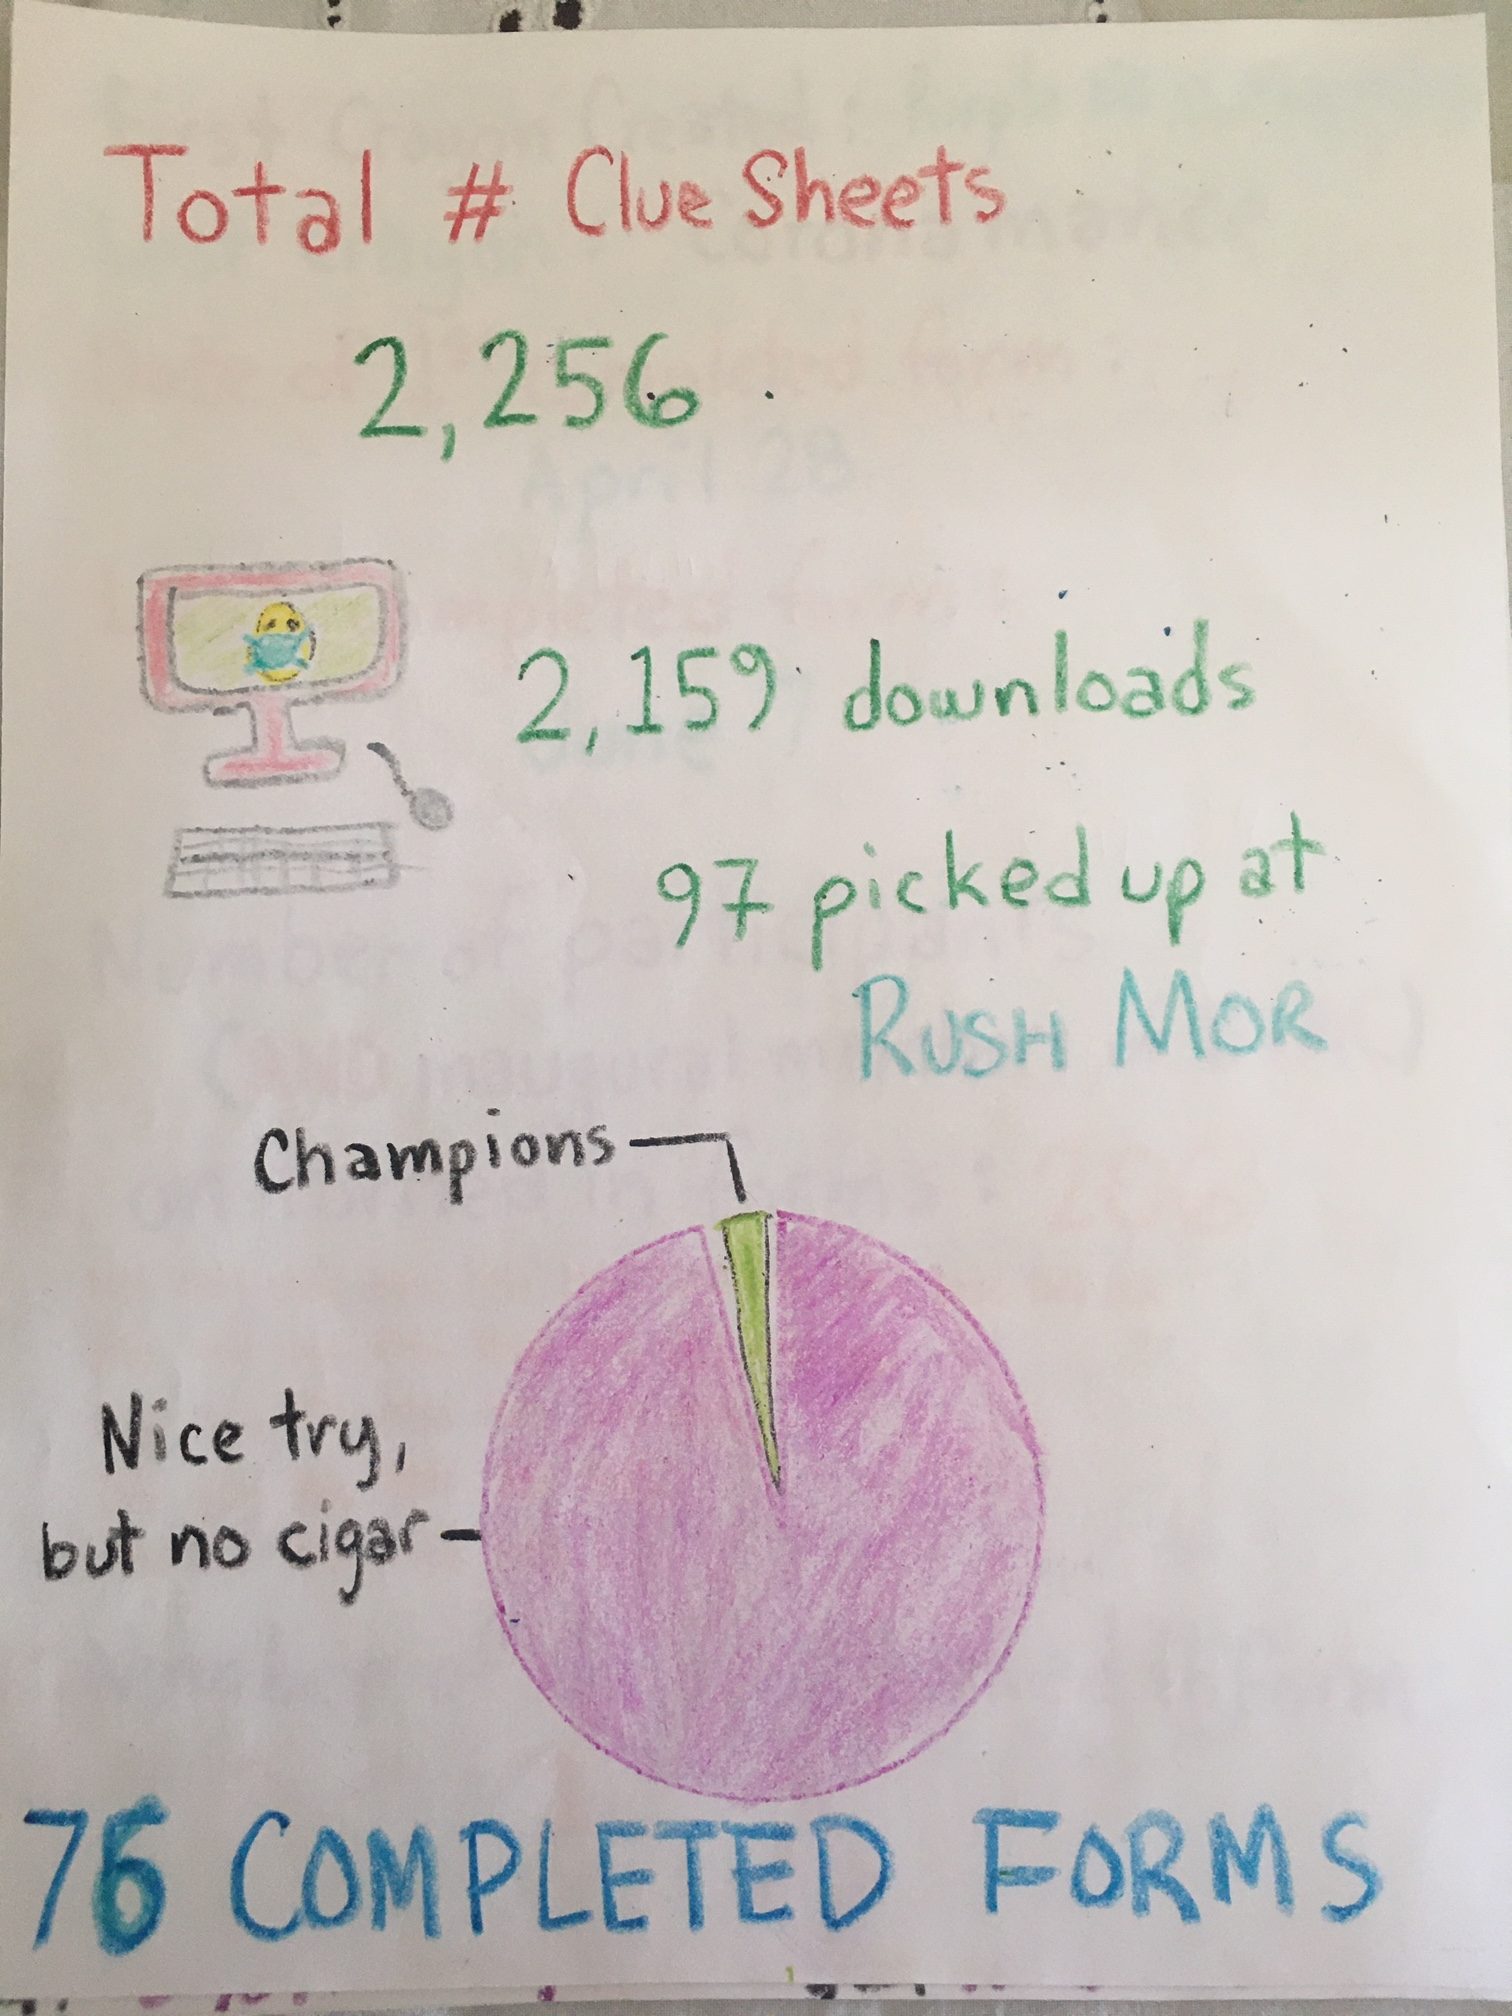 Total # Clue Sheets
2,256
2,159 downloads
97 picked up at
RUSH MOR
Champions
Nice try,
but no cigar
76 COMPLETED FORMS